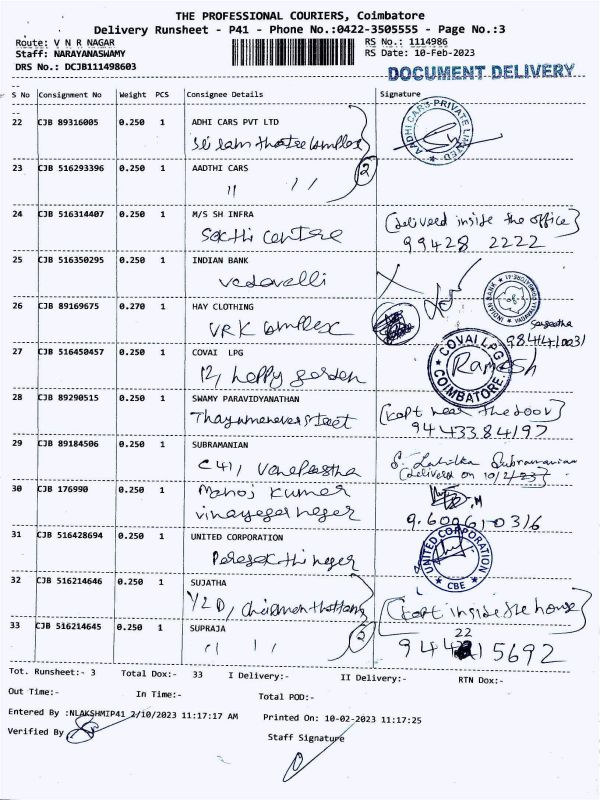 THE PROFESSIONAL COURIERS, Coimbatore
Delivery Runsheet - P41 - Phone No.:0422-3505555 - Page No.:3
Route: V N R NAGAR RS No.: 1114986
Staff: NARAYANASWAMY RS Date: 10-Feb-2023
DRS No.: DCJB111498603
DOCUMENT DELIVERY
S No Consignment No Weight PCS Consignee Details Signature
22 CJB 89316005 0.250 1 ADHI CARS PVT LTD
AADHI CARS PRIVATE LIMITED
23 CJB 516293396 0.250 1 AADTHI CARS
" "
2
24 CJB 516314407 0.250 1 M/S SH INFRA
Sakthi Centre
(delivered inside the office)
99428 2222
25 CJB 516350295 0.250 1 INDIAN BANK
vedavalli
INDIAN BANK
26 CJB 89169675 0.270 1 HAY CLOTHING
VRK Complex
27 CJB 516450457 0.250 1 COVAI LPG
12, happy garden
COVAI LPG
COIMBATORE
Ramesh
28 CJB 89290515 0.250 1 SWAMY PARAVIDYANATHAN
(kept near the door)
9443384197
29 CJB 89184506 0.250 1 SUBRAMANIAN
C41,
Subramanian
(delivered on 10/2/23)
30 CJB 176990 0.250 1 Manoj Kumar
vinayagar nagar
9.600610316
31 CJB 516428694 0.250 1 UNITED CORPORATION
UNITED CORPORATION
CBE
32 CJB 516214646 0.250 1 SUJATHA
(kept inside the house)
33 CJB 516214645 0.250 1 SUPRAJA
" "
22
15692
Tot. Runsheet:- 3 Total Dox:- 33 I Delivery:- II Delivery:- RTN Dox:-
Out Time:- In Time:- Total POD:-
Entered By :NLAKSHMIP41 2/10/2023 11:17:17 AM Printed On: 10-02-2023 11:17:25
Verified By
Staff Signature